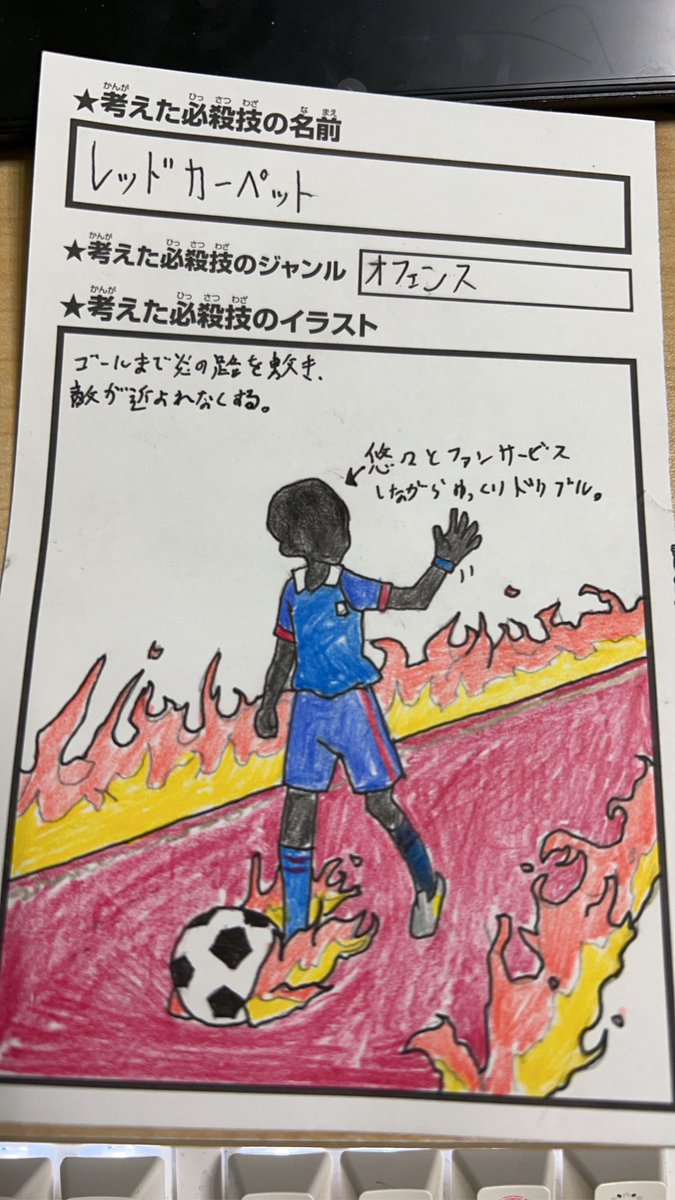 ★考えた必殺技の名前
レッドカーペット
★考えた必殺技のジャンル
オフェンス
★考えた必殺技のイラスト
ゴールまで炎の路を敷き、
敵が近よれなくする。
悠々とファンサービス
しながらゆっくりドリブル。